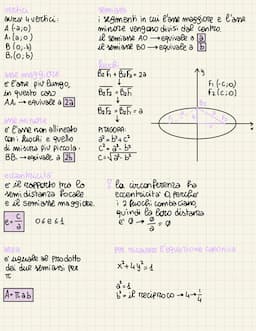 vertici
A (-a;0)
A₁ (a;0)
B (0;-b)
B₁ (0;b)
asse maggiore
è l'asse più lungo,
in questo caso
AA₁ → equivale a 2a
asse minore
è l'asse non allineato
con i fuochi e quello
di misura più piccola.
BB₁ → equivale a 2b
eccentricità
è il rapporto tra la
semi distanza focale
e il semiasse maggiore.
e = c/a 0≤e≤1
area
è uguale al prodotto
dei due semiassi per
π
A = πab
semiassi
i segmenti in cui l'asse maggiore e l'asse
minore vengono divisi dal centro.
il semiasse AO → equivale a a
il semiasse BO → equivale a b
fuochi
B₂F₁ + B₂F₂ = 2a
B₂F₂ = B₂F₁
B₂F₂ = B₂F₁ = a
PITAGORA:
a² = b² + c²
c² = a² - b²
c = √a² - b²
y
F₁ (-c;0)
F₂ (c;0)
B₂
x
la circonferenza ha
eccentricità 0 perché
i 2 fuochi combaciano,
quindi la loro distanza
è 0 → 0/a = 0
per ricavare l'equazione canonica
x² + 4y² = 1
a² = 1
b² = il reciproco → 4 → 1/4